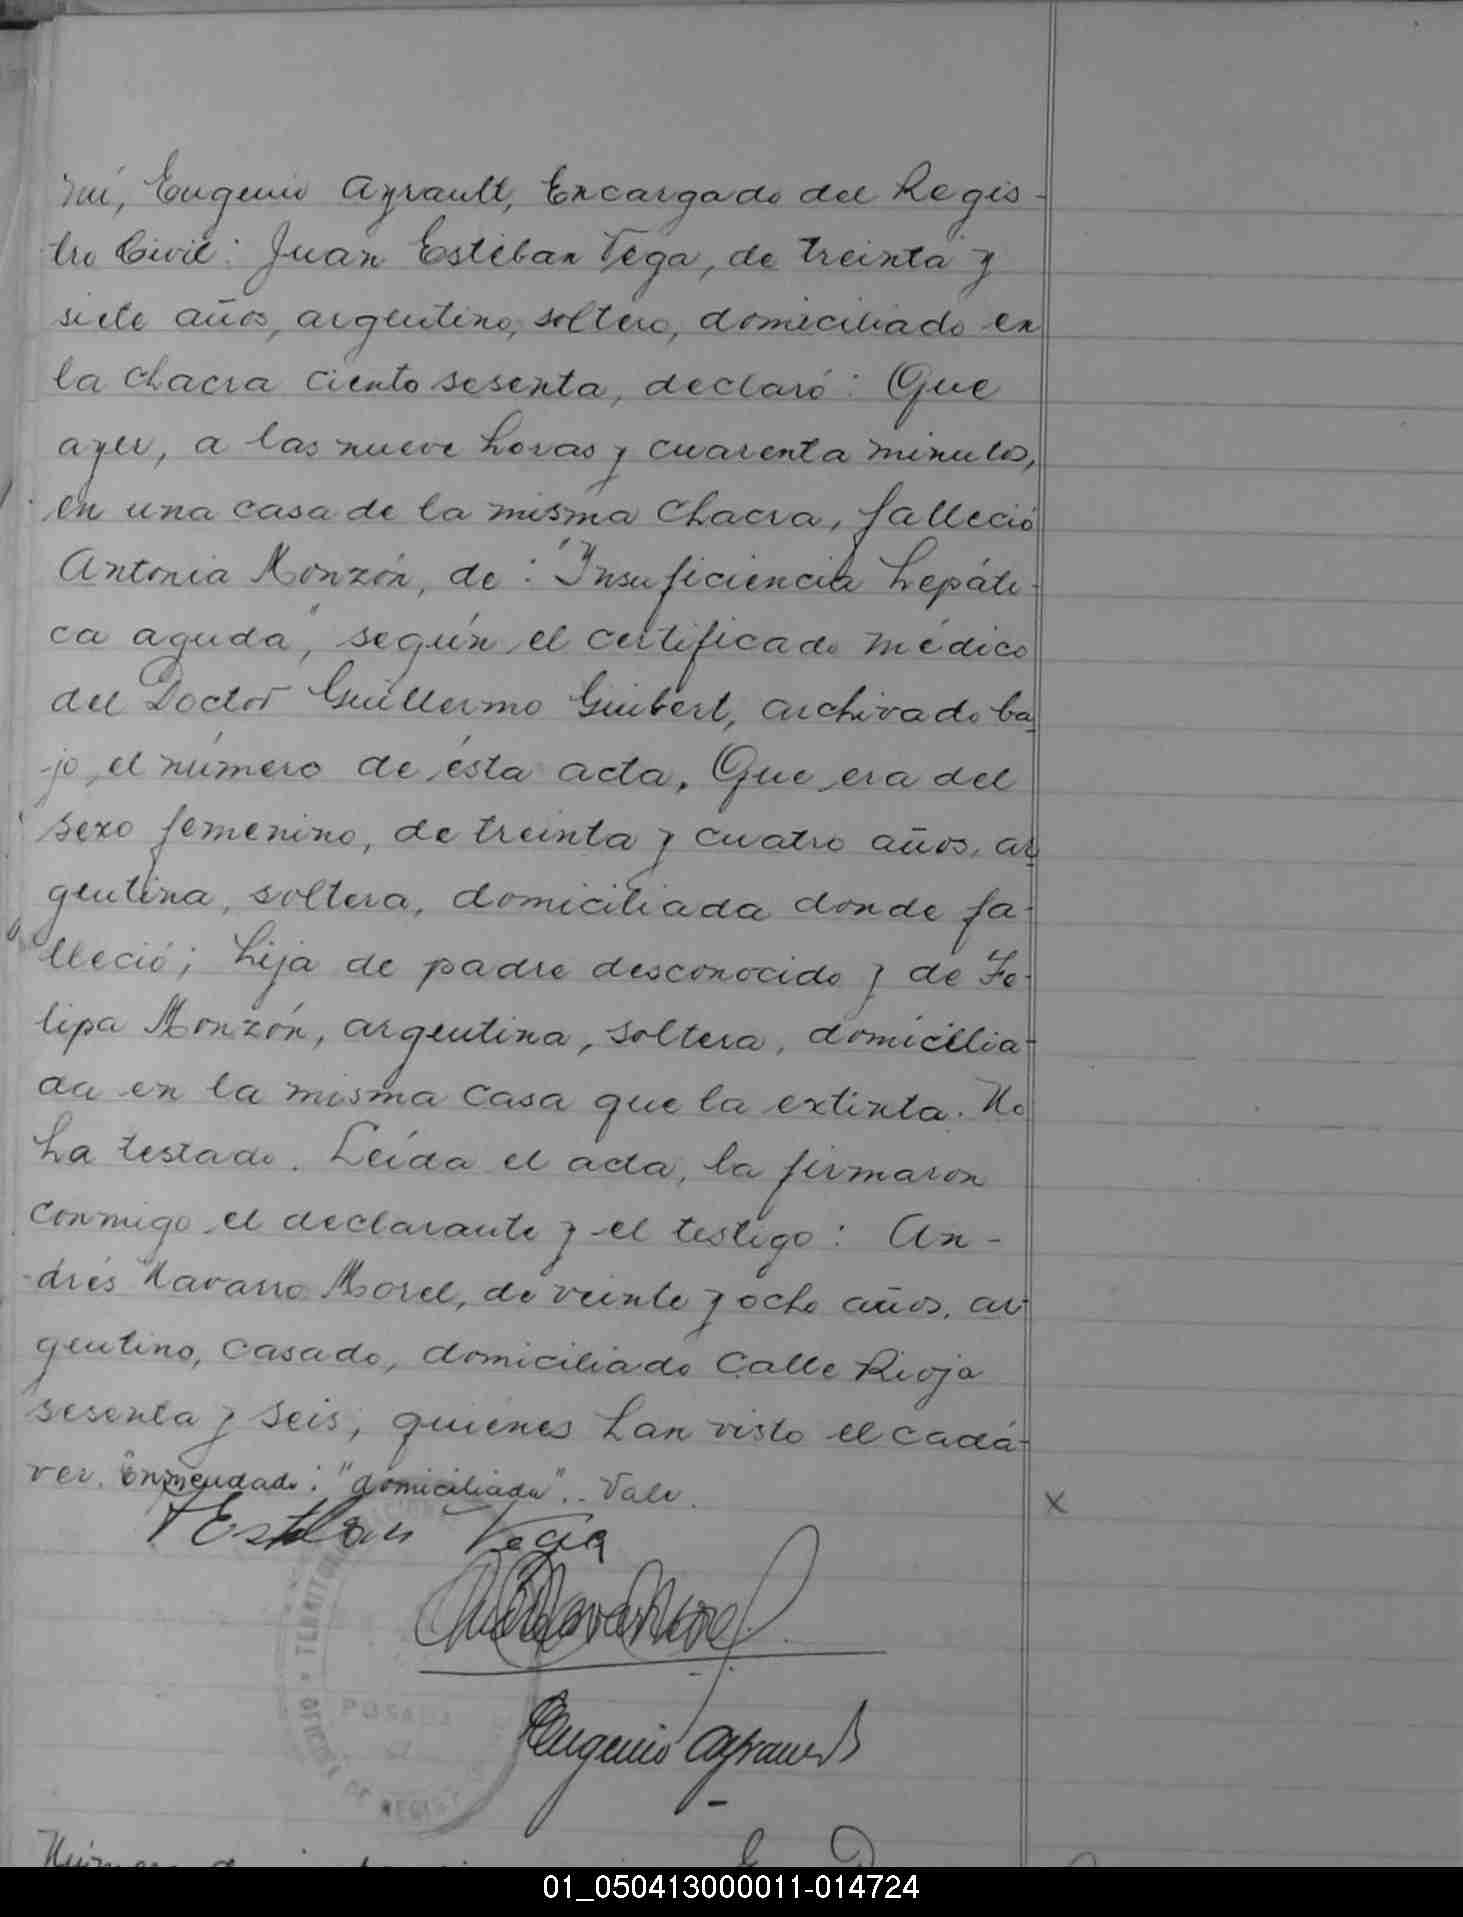 mí, Eugenio Ayrault, Encargado del Regis-
tro Civil: Juan Esteban Vega, de treinta y
siete años, argentino, soltero, domiciliado en
la chacra ciento sesenta, declaró: Que
ayer, a las nueve horas y cuarenta minutos,
en una casa de la misma chacra, falleció
Antonia Monzón, de: "Insuficiencia hepáti-
ca aguda", según el certificado médico
del Doctor Guillermo Guibert, archivado ba-
-jo el número de ésta acta. Que era del
sexo femenino, de treinta y cuatro años, ar-
gentina, soltera, domiciliada donde fa-
lleció; hija de padre desconocido y de Fe-
lipa Monzón, argentina, soltera, domicilia-
da en la misma casa que la extinta. No
ha testado. Leída el acta, la firmaron
conmigo el declarante y el testigo: An-
-drés Navarro Morel, de veinte y ocho años, ar-
gentino, casado, domiciliado Calle Rioja
sesenta y seis; quiénes han visto el cadá-
ver. Enmendado: "domiciliada".. Vale.
x
J Esteban Vega
Eugenio Ayrault
POSADAS
01_050413000011-014724